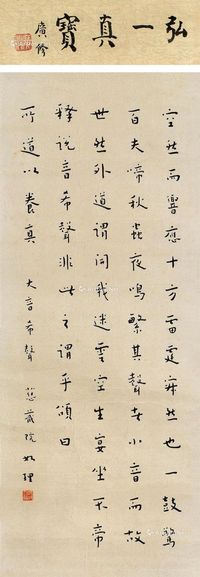 弘一真寶
廣修
空然而響應十方雷霆寂然也一鼓驚
百夫啼秋蟲夜鳴繁其聲小音而故
世然外道謂問我迷雲空生宴坐不帝
釋說音希聲非此之謂乎頌曰
所道以養真 大音希聲 慈藏院如理